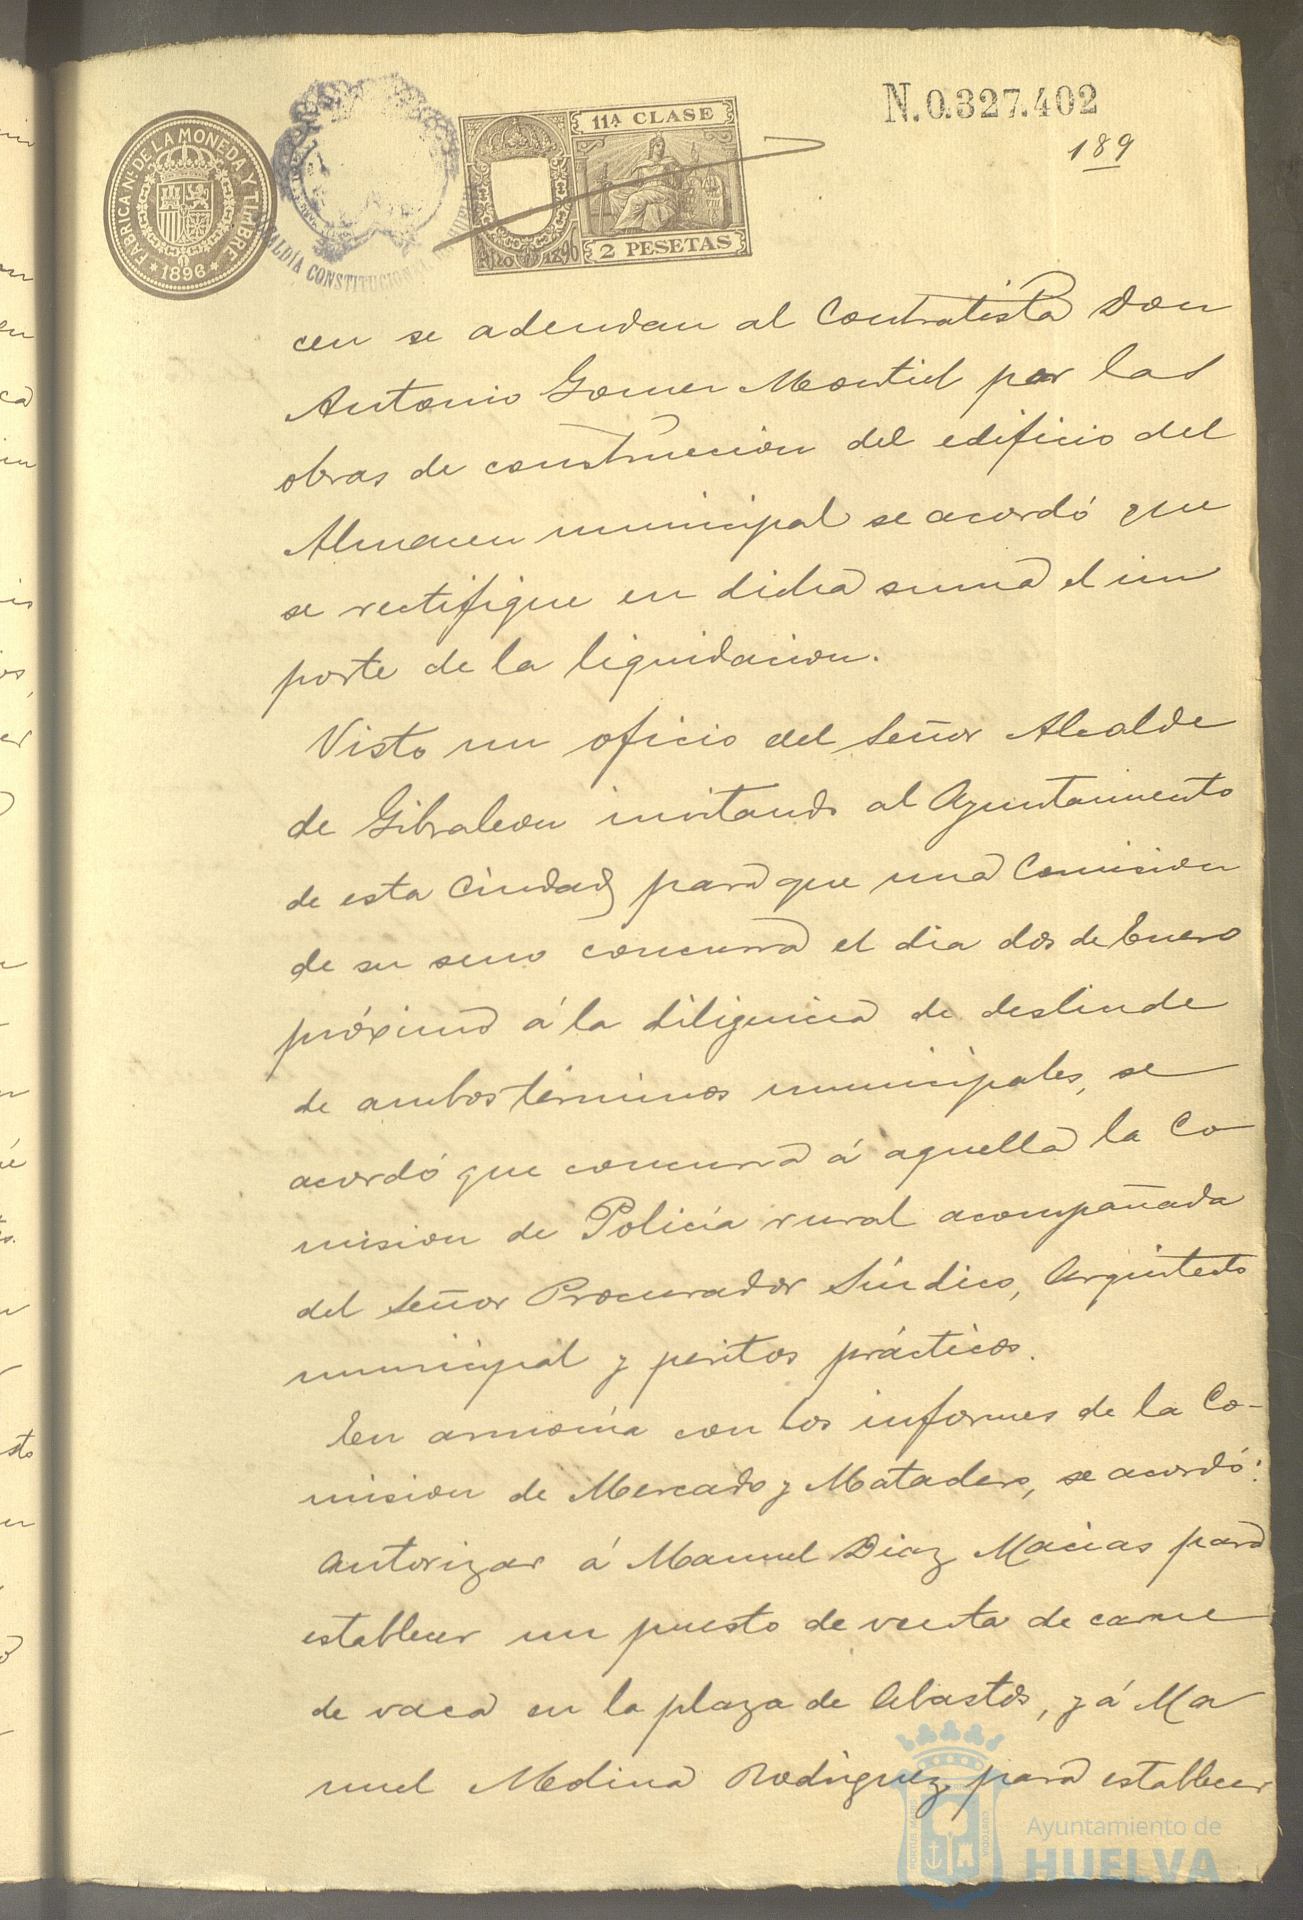 N.0.327.402
189
FABRICA Nal. DE LA MONEDA Y TIMBRE
* 1896 *
ALCALDÍA CONSTITUCIONAL
11ª CLASE
Año 1896
2 PESETAS
cen se adeudan al Contratista Don
Antonio Gomez Montiel por las
obras de construccion del edificio del
Almacen municipal se acordó que
se rectifique en dicha suma el im
porte de la liquidacion.
Visto un oficio del Señor Alcalde
de Gibraleon invitando al Ayuntamiento
de esta Ciudad para que una Comision
de su seno concurra el dia dos de Enero
próximo á la diligencia de deslinde
de ambos términos municipales, se
acordó que concurra á aquella la Co
mision de Policía rural acompañada
del Señor Procurador Síndico, Arquitecto
municipal y peritos prácticos.
En armonía con los informes de la Co-
mision de Mercado y Matadero, se acordó:
Autorizar á Manuel Diaz Macias para
establecer un puesto de venta de carne
de vaca en la plaza de Abastos, y á Ma
nuel Medina Rodriguez para establecer
Ayuntamiento de
HUELVA